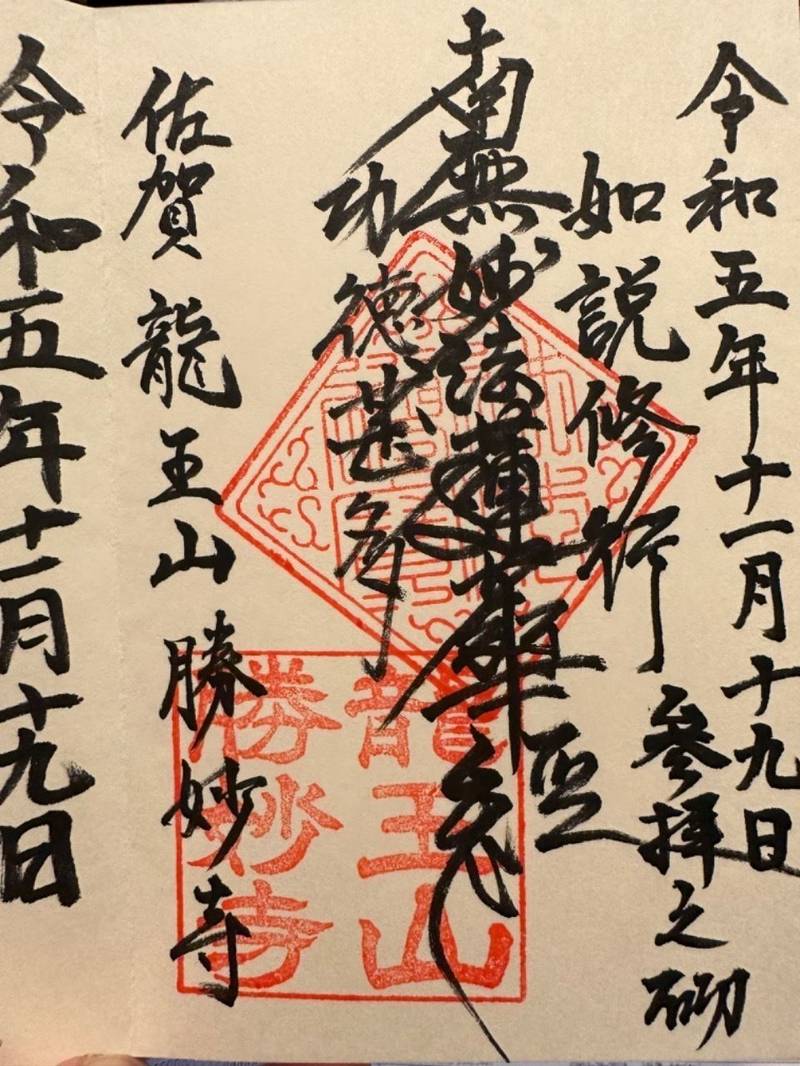 令和五年十一月十九日
參拝之砌
如説修行
南無妙法蓮華經
功徳甚多
佐賀龍王山勝妙寺
龍王山
勝妙寺
令和五年十一月十九日